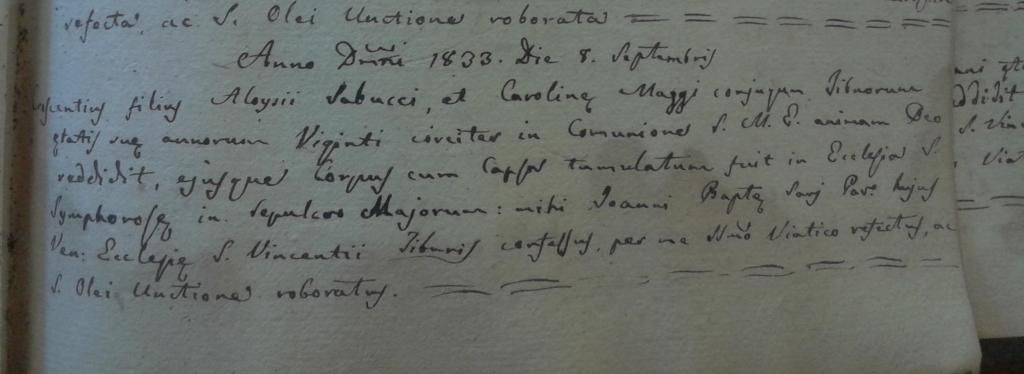 refecta, ac S. Olei Unctione roborata
Anno Dñi 1833. Die 8. Septembris
filius Aloysii Sabucci, et Carolinę Maggi conjugum Tiburum
ętatis suę annorum Viginti circiter in Comunione S. M. E. animam Deo
reddidit, ejusque Corpus cum Capsa tumulatum fuit in Ecclesia S.
Symphorosę in Sepulcro Majorum: mihi Joanni Baptę Par.º hujus
Ven: Ecclesię S. Vincentii Tiburis confessus, per me SSmõ Viatico refectus, ac
S. Olei Unctione roboratus.